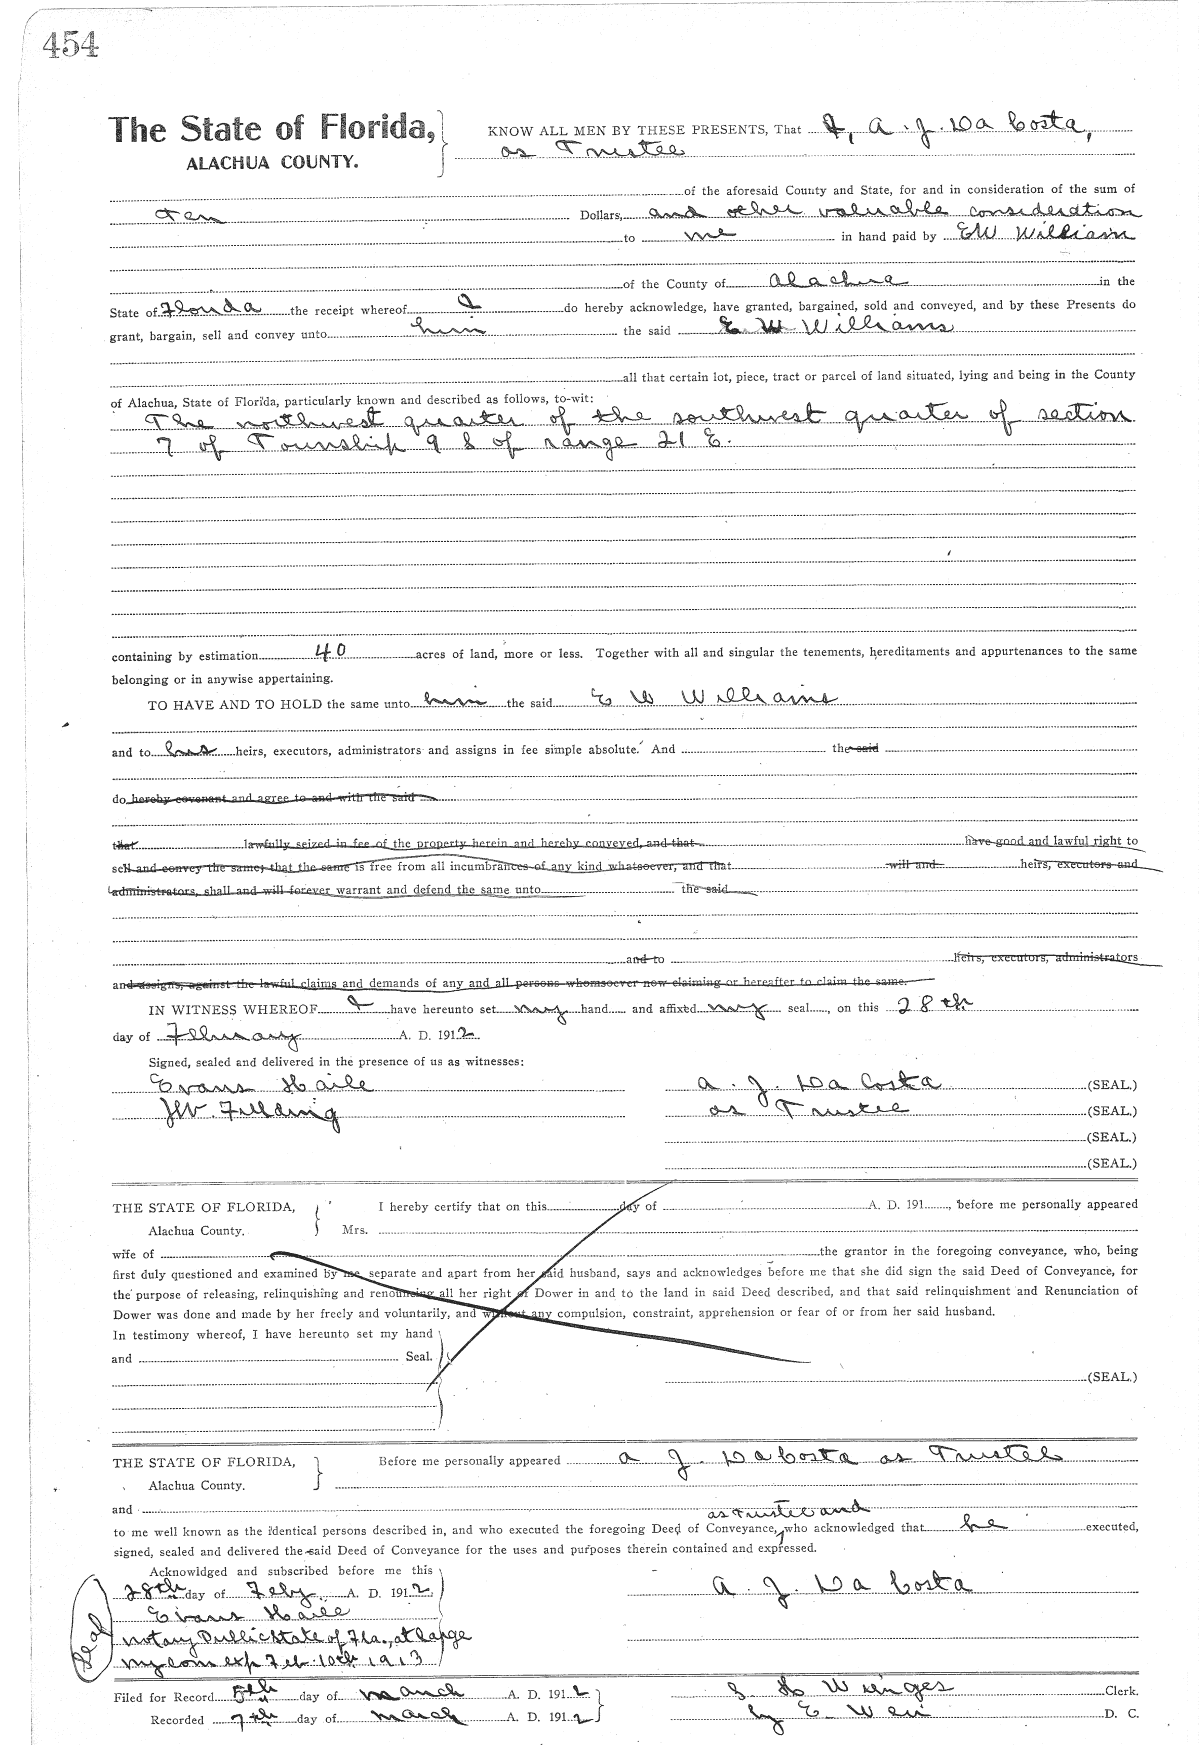 454
The State of Florida,
ALACHUA COUNTY.
KNOW ALL MEN BY THESE PRESENTS, That I, A. J. Da Costa,
as Trustee
of the aforesaid County and State, for and in consideration of the sum of
Ten Dollars, and other valuable consideration
to me in hand paid by E W William
of the County of Alachua in the
State of Florida the receipt whereof I do hereby acknowledge, have granted, bargained, sold and conveyed, and by these Presents do
grant, bargain, sell and convey unto him the said E W Williams
all that certain lot, piece, tract or parcel of land situated, lying and being in the County
of Alachua, State of Florida, particularly known and described as follows, to-wit:
The northwest quarter of the southwest quarter of section
7 of Township 9 S of range 21 E.
containing by estimation 40 acres of land, more or less. Together with all and singular the tenements, hereditaments and appurtenances to the same
belonging or in anywise appertaining.
TO HAVE AND TO HOLD the same unto him the said E W Williams
and to his heirs, executors, administrators and assigns in fee simple absolute. And the said
do hereby covenant and agree to and with the said
that lawfully seized in fee of the property herein and hereby conveyed, and that have good and lawful right to
sell and convey the same; that the same is free from all incumbrances of any kind whatsoever, and that will and heirs, executors and
administrators, shall and will forever warrant and defend the same unto the said
and to heirs, executors, administrators
and assigns, against the lawful claims and demands of any and all persons whomsoever now claiming or hereafter to claim the same.
IN WITNESS WHEREOF I have hereunto set my hand and affixed my seal, on this 28th
day of February A. D. 1912.
Signed, sealed and delivered in the presence of us as witnesses:
Evans Haile A. J. Da Costa (SEAL.)
J W. Fielding as Trustee (SEAL.)
(SEAL.)
(SEAL.)
THE STATE OF FLORIDA, I hereby certify that on this day of A. D. 191 , before me personally appeared
Alachua County. Mrs.
wife of the grantor in the foregoing conveyance, who, being
first duly questioned and examined by me, separate and apart from her said husband, says and acknowledges before me that she did sign the said Deed of Conveyance, for
the purpose of releasing, relinquishing and renouncing all her right of Dower in and to the land in said Deed described, and that said relinquishment and Renunciation of
Dower was done and made by her freely and voluntarily, and without any compulsion, constraint, apprehension or fear of or from her said husband.
In testimony whereof, I have hereunto set my hand
and Seal.
(SEAL.)
THE STATE OF FLORIDA, Before me personally appeared A J. Da Costa as Trustee
Alachua County.
and
as Trustee and
to me well known as the identical persons described in, and who executed the foregoing Deed of Conveyance, who acknowledged that he executed,
signed, sealed and delivered the said Deed of Conveyance for the uses and purposes therein contained and expressed.
Acknowldged and subscribed before me this
28th day of Feby. A. D. 1912. A. J. Da Costa
Evans Haile
Notary Public State of Fla., at large
My com exp Feb. 10th 1913
Seal
Filed for Record 5th day of March A. D. 1912 S H Wienges Clerk.
Recorded 7th day of March A. D. 1912 by E. Weir D. C.